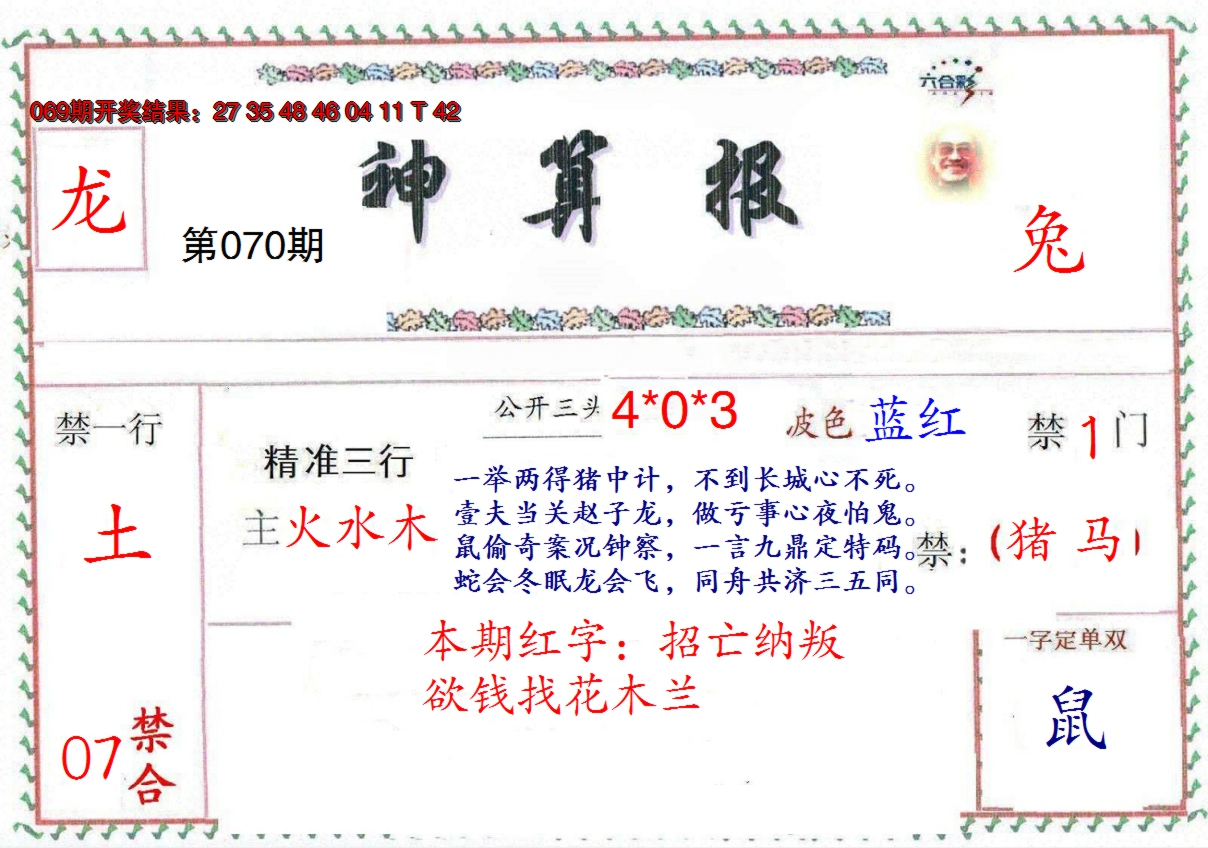 六合彩
069期开奖结果：27 35 48 46 04 11 T 42
神算报
龙
第070期
兔
禁一行
土
07禁合
精准三行
主火水木
公开三头 4*0*3
波色 蓝红
禁1门
一举两得猪中计，不到长城心不死。
壹夫当关赵子龙，做亏事心夜怕鬼。
鼠偷奇案况钟察，一言九鼎定特码。
蛇会冬眠龙会飞，同舟共济三五同。
禁：（猪 马）
本期红字：招亡纳叛
欲钱找花木兰
一字定单双
鼠